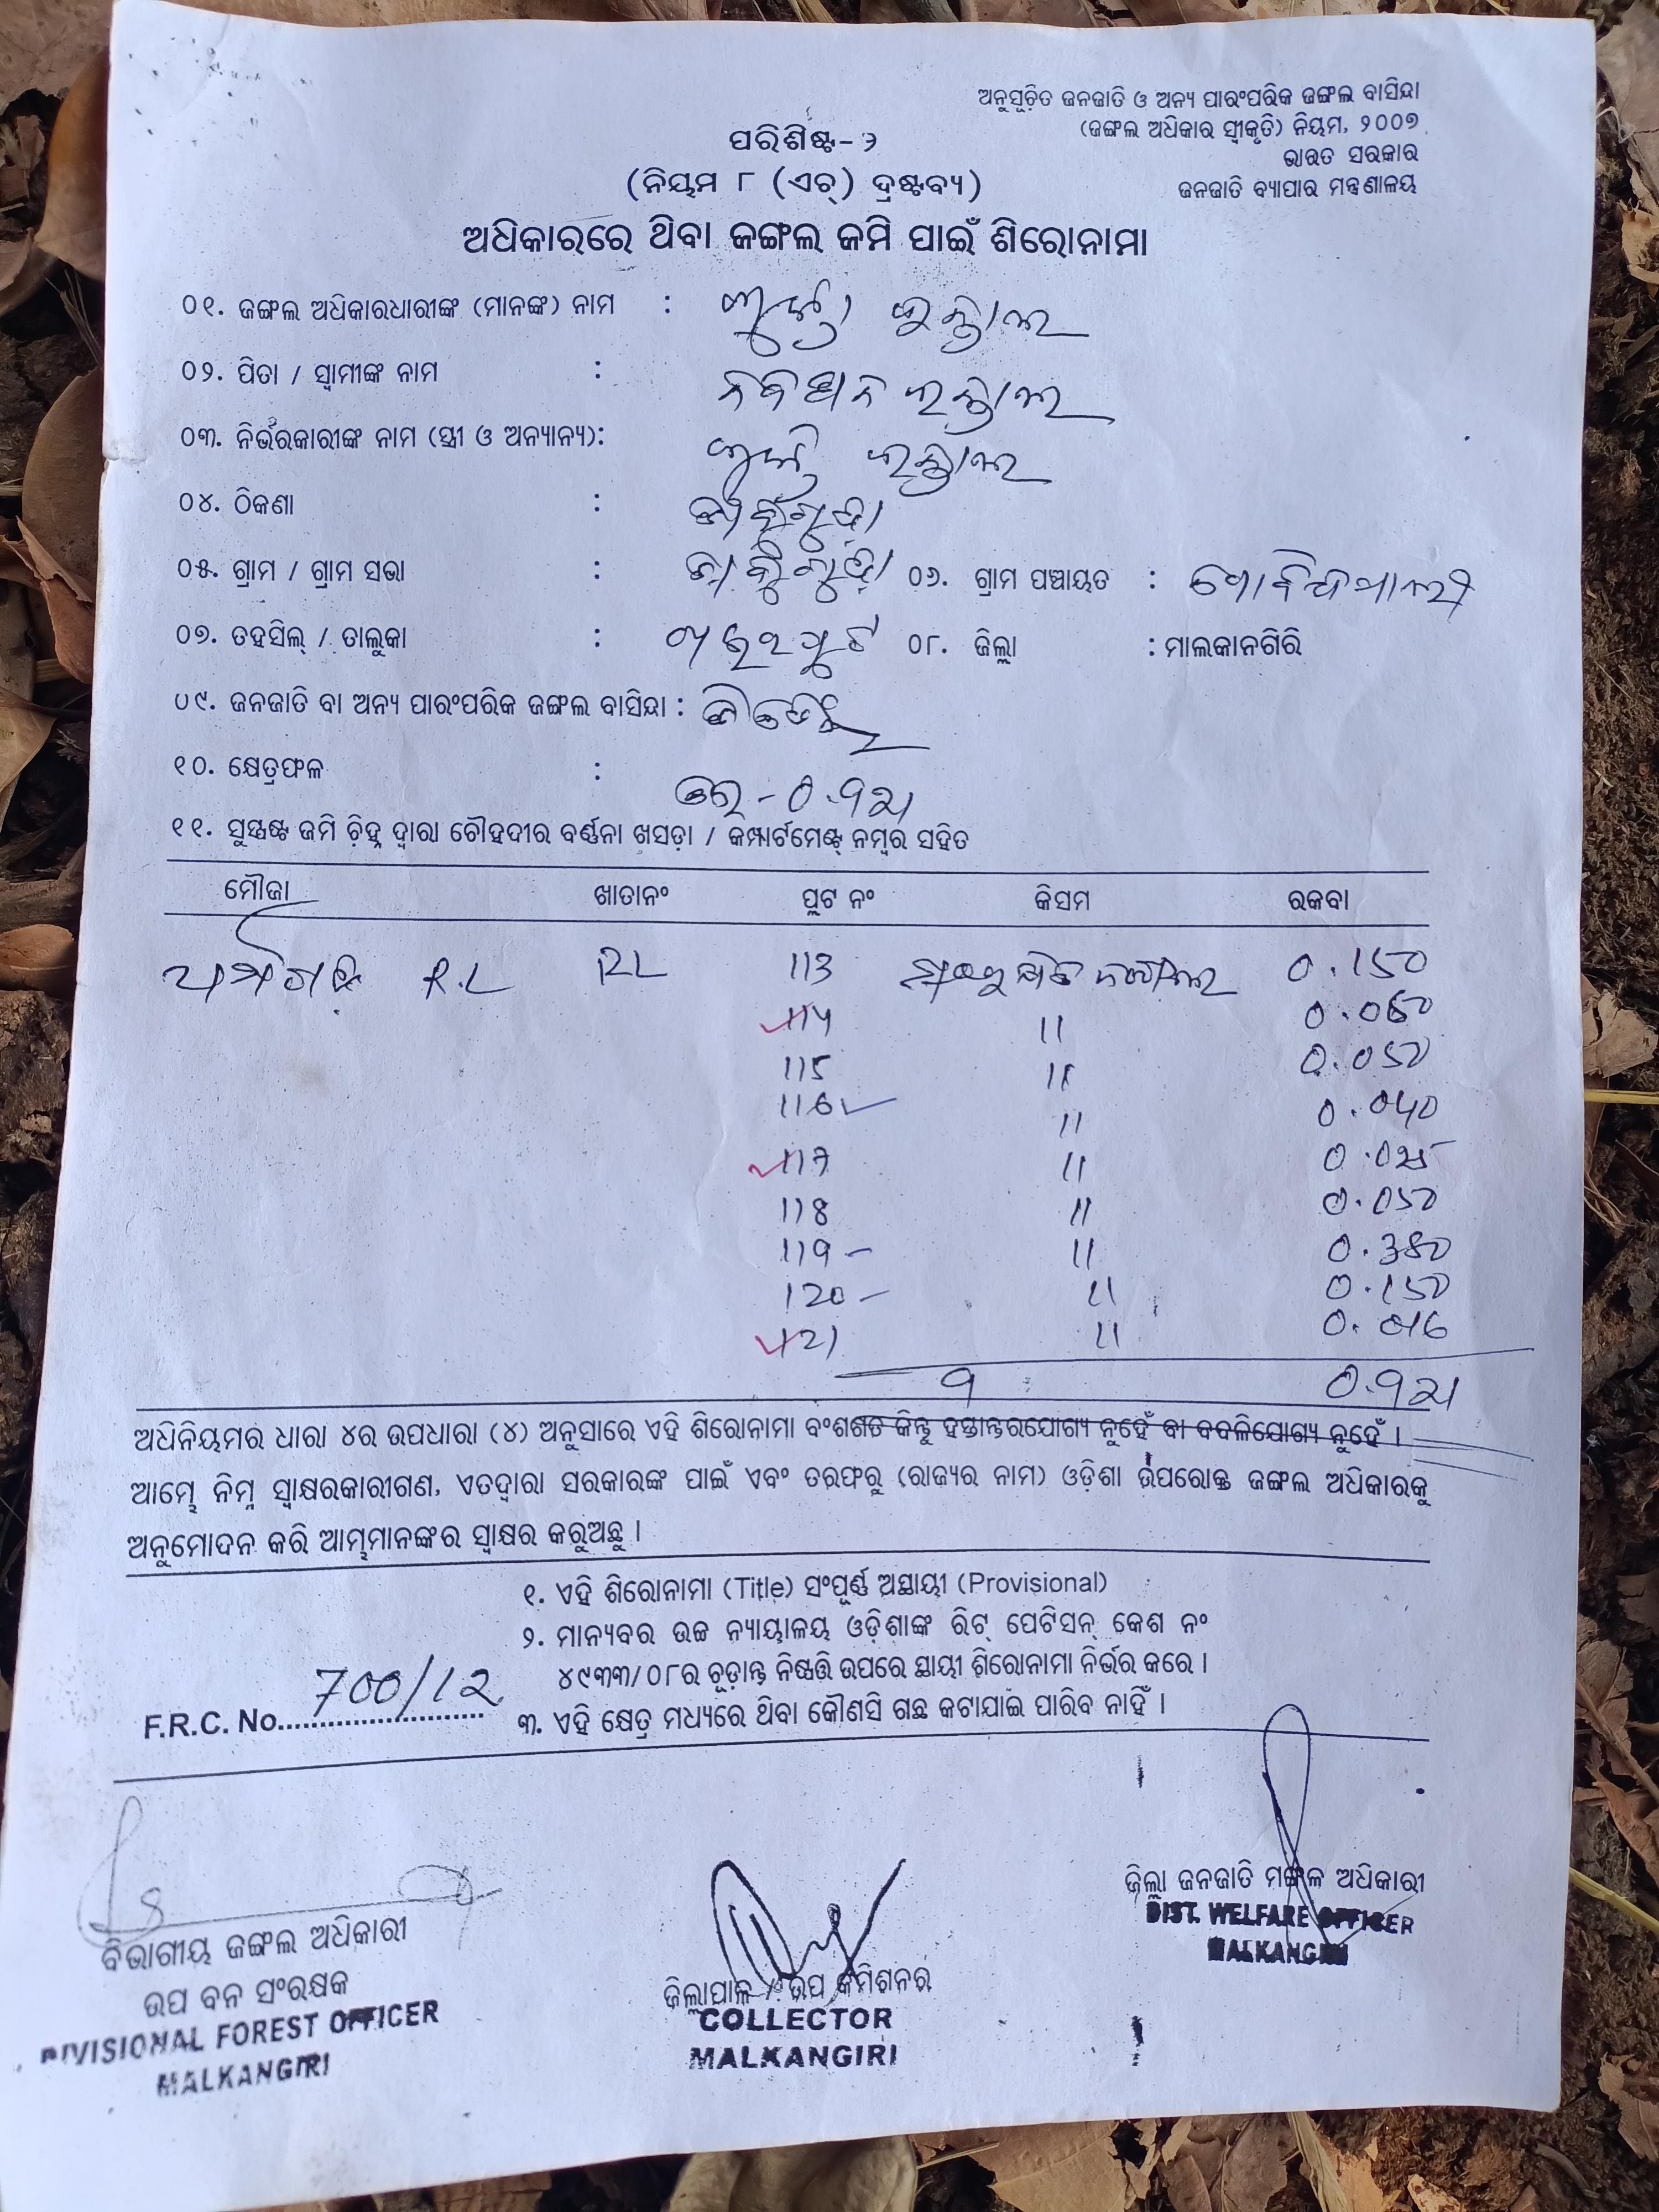 ଅନୁସୂଚିତ ଜନଜାତି ଓ ଅନ୍ୟ ପାରଂପରିକ ଜଙ୍ଗଲ ବାସିନ୍ଦା
(ଜଙ୍ଗଲ ଅଧିକାର ସ୍ୱୀକୃତି) ନିୟମ, ୨୦୦୭
ଭାରତ ସରକାର
ଜନଜାତି ବ୍ୟାପାର ମନ୍ତ୍ରଣାଳୟ
ପରିଶିଷ୍ଟ-୨
(ନିୟମ ୮ (ଏଚ୍) ଦ୍ରଷ୍ଟବ୍ୟ)
ଅଧିକାରରେ ଥିବା ଜଙ୍ଗଲ ଜମି ପାଇଁ ଶିରୋନାମା
୦୧. ଜଙ୍ଗଲ ଅଧିକାରଧାରୀଙ୍କ (ମାନଙ୍କ) ନାମ :
୦୨. ପିତା / ସ୍ୱାମୀଙ୍କ ନାମ :
୦୩. ନିର୍ଭରକାରୀଙ୍କ ନାମ (ସ୍ତ୍ରୀ ଓ ଅନ୍ୟାନ୍ୟ):
୦୪. ଠିକଣା :
୦୫. ଗ୍ରାମ / ଗ୍ରାମ ସଭା : ୦୬. ଗ୍ରାମ ପଞ୍ଚାୟତ :
୦୭. ତହସିଲ୍ / ତାଲୁକା : ୦୮. ଜିଲ୍ଲା : ମାଲକାନଗିରି
୦୯. ଜନଜାତି ବା ଅନ୍ୟ ପାରଂପରିକ ଜଙ୍ଗଲ ବାସିନ୍ଦା :
୧୦. କ୍ଷେତ୍ରଫଳ :
୧୧. ସୁସ୍ପଷ୍ଟ ଜମି ଚିହ୍ନ ଦ୍ୱାରା ଚୌହଦୀର ବର୍ଣ୍ଣନା ଖସଡ଼ା / କମ୍ପାର୍ଟମେଣ୍ଟ୍ ନମ୍ବର ସହିତ
ମୌଜା ଖାତାନଂ ପ୍ଲଟ ନଂ କିସମ ରକବା
R.L RL 113 0.150
114 11 0.060
115 11 0.050
116 11 0.040
117 11 0.025
118 11 0.050
119 11 0.380
120 11 0.150
121 11 0.016
9 0.921
ଅଧିନିୟମର ଧାରା ୪ର ଉପଧାରା (୪) ଅନୁସାରେ ଏହି ଶିରୋନାମା ବଂଶଗତ କିନ୍ତୁ ହସ୍ତାନ୍ତରଯୋଗ୍ୟ ନୁହେଁ ବା ବଦଳିଯୋଗ୍ୟ ନୁହେଁ ।
ଆମ୍ଭେ ନିମ୍ନ ସ୍ୱାକ୍ଷରକାରୀଗଣ, ଏତଦ୍ୱାରା ସରକାରଙ୍କ ପାଇଁ ଏବଂ ତରଫରୁ (ରାଜ୍ୟର ନାମ) ଓଡ଼ିଶା ଉପରୋକ୍ତ ଜଙ୍ଗଲ ଅଧିକାରକୁ
ଅନୁମୋଦନ କରି ଆମ୍ଭମାନଙ୍କର ସ୍ୱାକ୍ଷର କରୁଅଛୁ ।
୧. ଏହି ଶିରୋନାମା (Title) ସଂପୂର୍ଣ୍ଣ ଅସ୍ଥାୟୀ (Provisional)
୨. ମାନ୍ୟବର ଉଚ୍ଚ ନ୍ୟାୟାଳୟ ଓଡ଼ିଶାଙ୍କ ରିଟ୍ ପେଟିସନ୍ କେଶ ନଂ
୪୯୩୩/୦୮ର ଚୂଡ଼ାନ୍ତ ନିଷ୍ପତ୍ତି ଉପରେ ସ୍ଥାୟୀ ଶିରୋନାମା ନିର୍ଭର କରେ ।
F.R.C. No. 700/12
୩. ଏହି କ୍ଷେତ୍ର ମଧ୍ୟରେ ଥିବା କୌଣସି ଗଛ କଟାଯାଇ ପାରିବ ନାହିଁ ।
ବିଭାଗୀୟ ଜଙ୍ଗଲ ଅଧିକାରୀ
ଉପ ବନ ସଂରକ୍ଷକ
DIVISIONAL FOREST OFFICER
MALKANGIRI
ଜିଲ୍ଲାପାଳ / ଉପ କମିଶନର
COLLECTOR
MALKANGIRI
ଜିଲ୍ଲା ଜନଜାତି ମଙ୍ଗଳ ଅଧିକାରୀ
DIST. WELFARE OFFICER
MALKANGIRI